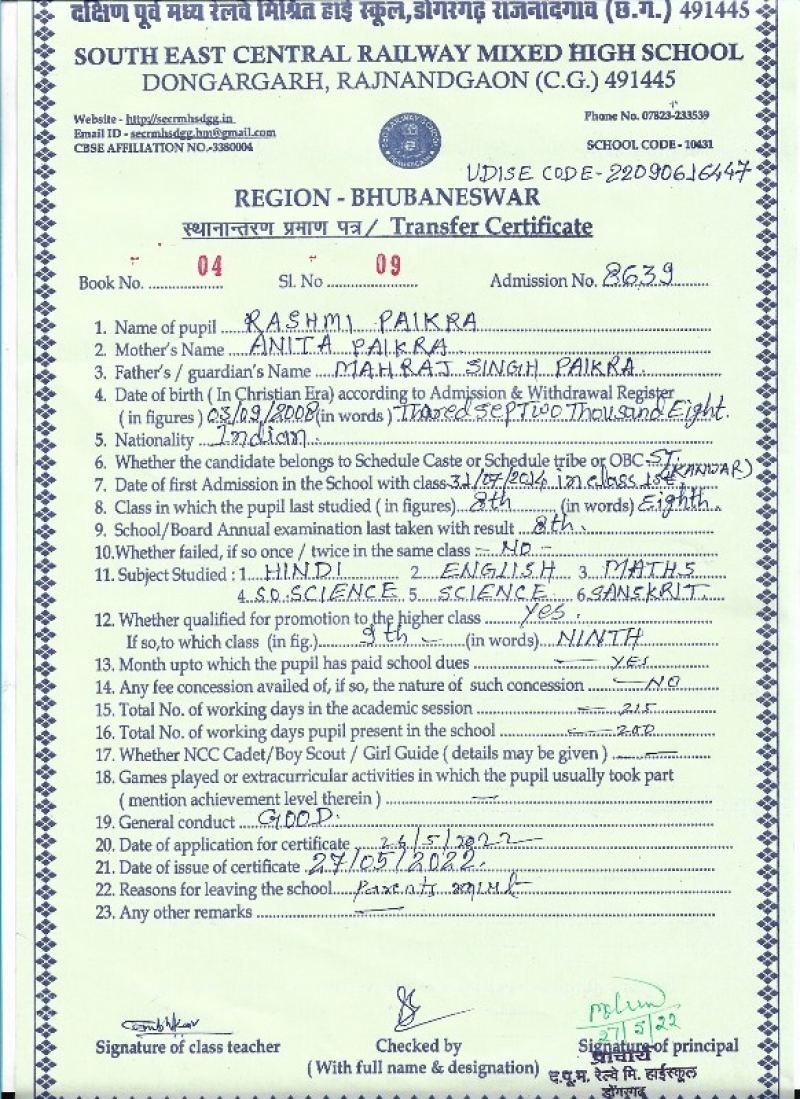 दक्षिण पूर्व मध्य रेलवे मिश्रित हाई स्कूल,डोंगरगढ़ राजनांदगांव (छ.ग.) 491445
SOUTH EAST CENTRAL RAILWAY MIXED HIGH SCHOOL
DONGARGARH, RAJNANDGAON (C.G.) 491445
Website - http://secrmhsdgg.in Phone No. 07823-233539
Email ID - secrmhsdgg.hm@gmail.com
CBSE AFFILIATION NO.-3380004 SCHOOL CODE - 10431
UDISE CODE-22090616447
REGION - BHUBANESWAR
स्थानान्तरण प्रमाण पत्र / Transfer Certificate
Book No. 04 Sl. No 09 Admission No. 8639
1. Name of pupil RASHMI PAIKRA
2. Mother's Name ANITA PAIKRA
3. Father's / guardian's Name MAHRAJ SINGH PAIKRA.
4. Date of birth ( In Christian Era) according to Admission & Withdrawal Register
( in figures ) 03/09/2008 (in words ) Sep Two Thousand Eight.
5. Nationality Indian.
6. Whether the candidate belongs to Schedule Caste or Schedule tribe or OBC ST. (KANWAR)
7. Date of first Admission in the School with class 31/07/2014 in class 1st
8. Class in which the pupil last studied ( in figures) 8th (in words) Eighth.
9. School/Board Annual examination last taken with result 8th.
10.Whether failed, if so once / twice in the same class - NO -
11. Subject Studied : 1. HINDI 2 ENGLISH 3 MATHS
4. SO. SCIENCE 5 SCIENCE 6. SANSKRIT.
12. Whether qualified for promotion to the higher class yes.
If so,to which class (in fig.) 9th - (in words) NINTH
13. Month upto which the pupil has paid school dues - YES
14. Any fee concession availed of, if so, the nature of such concession - NO
15. Total No. of working days in the academic session - 215
16. Total No. of working days pupil present in the school - 200
17. Whether NCC Cadet/Boy Scout / Girl Guide ( details may be given ) -
18. Games played or extracurricular activities in which the pupil usually took part
( mention achievement level therein ) -
19. General conduct GOOD.
20. Date of application for certificate 26/5/2022
21. Date of issue of certificate 27/05/2022.
22. Reasons for leaving the school Parents
23. Any other remarks -
27/5/22
Signature of class teacher Checked by Signature of principal
( With full name & designation)
प्राचार्य
द.पू.म. रेल्वे मि. हाईस्कूल
डोंगरगढ़